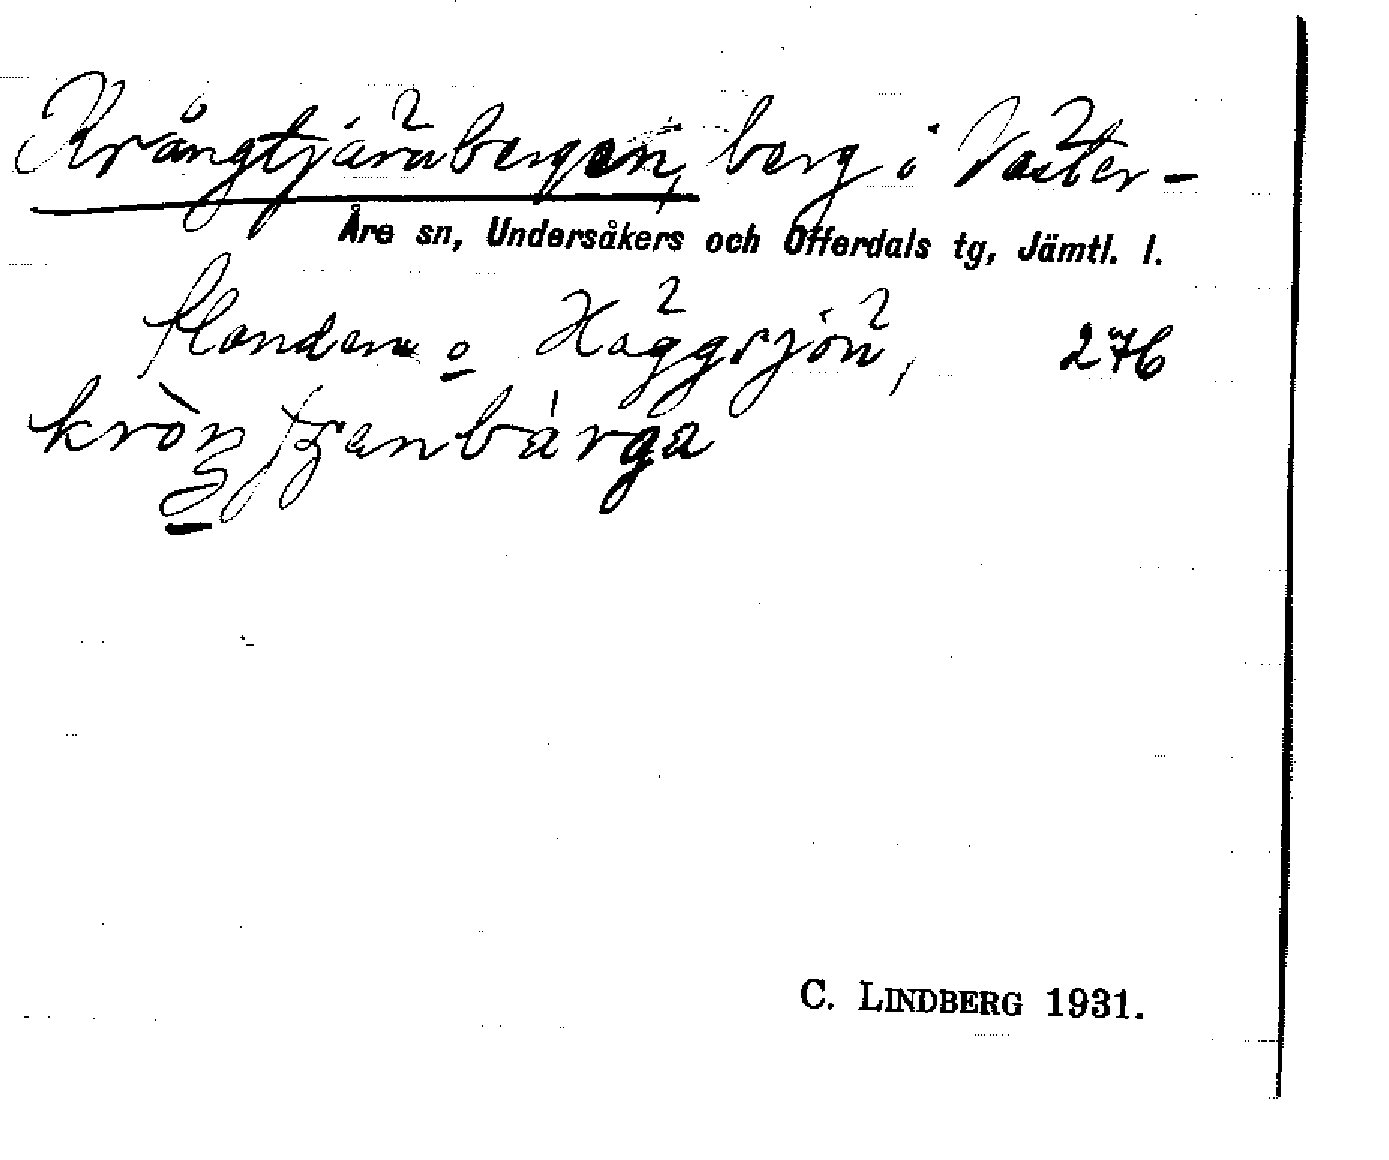 Krångtjärnbergen, berg i Väster-
Åre sn, Undersåkers och Offerdals tg, Jämtl. l.
flonden o Häggsjön, 276
C. LINDBERG 1931.